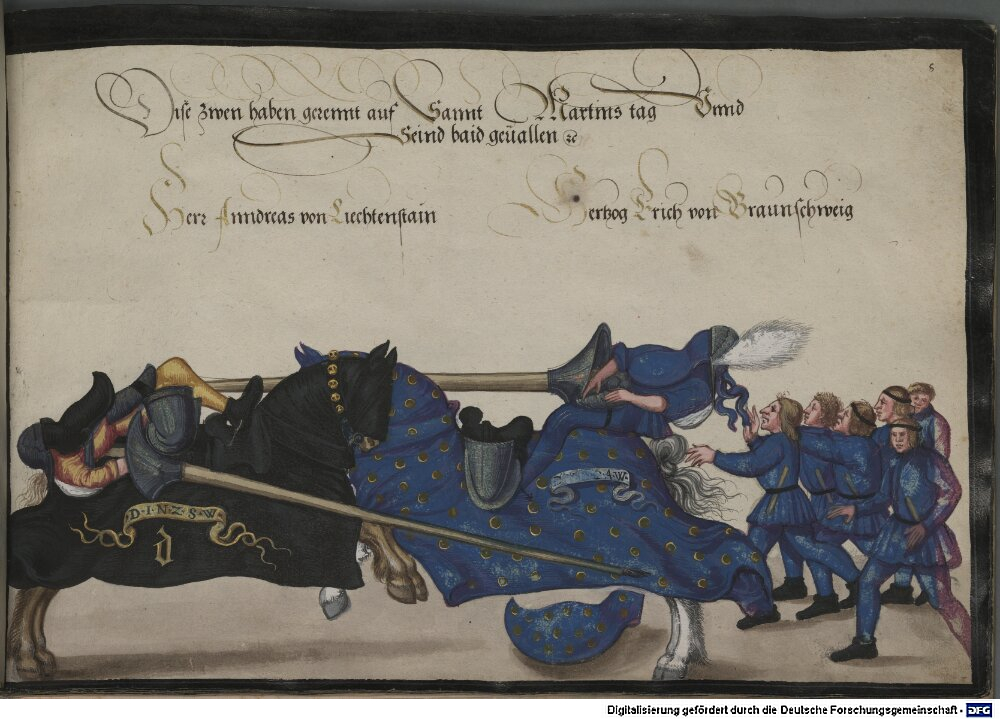 5
Dise zwen haben gerennt auf Sannt Martins tag Vnnd
Seind baid geüallen ꝛc
Herr Anndreas von Liechtenstain
Hertzog Erich von Braunschweig
D·I·N·Z·S·W·
d
Digitalisierung gefördert durch die Deutsche Forschungsgemeinschaft - DFG